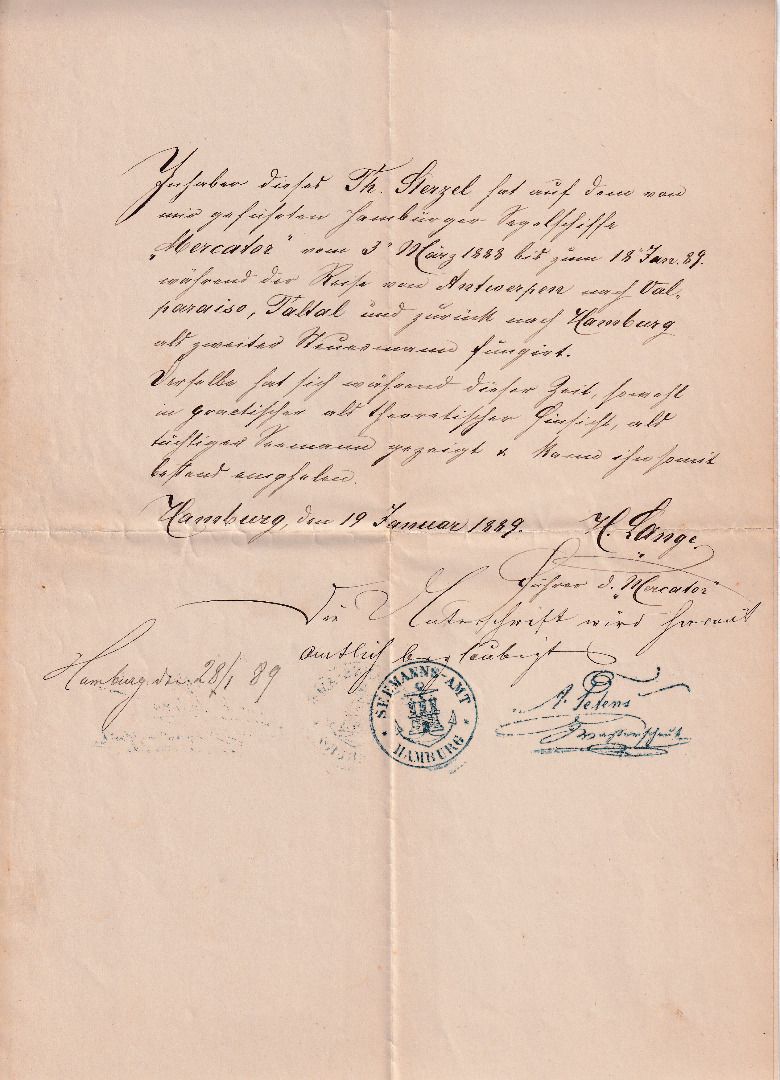 Inhaber dieses Th. Sterzel hat auf dem von
mir geführten Hamburger Segelschiffe
„Mercator“ vom 3t März 1888 bis zum 18t Jan. 89.
während der Reise von Antwerpen nach Val-
paraiso, Taltal und zurück nach Hamburg
als zweiter Steuermann fungirt.
Derselbe hat sich während dieser Zeit, sowohl
in practischer als theoretischer Hinsicht, als
tüchtiger Seemann gezeigt & kann ihn somit
bestens empfehlen.
Hamburg, den 19 Januar 1889. H. Lange.
Führer d. „Mercator“
Die Unterschrift wird hiermit
amtlich beglaubigt
Hamburg den 28/1 89
SEEMANNS-AMT
HAMBURG
Wasserschout